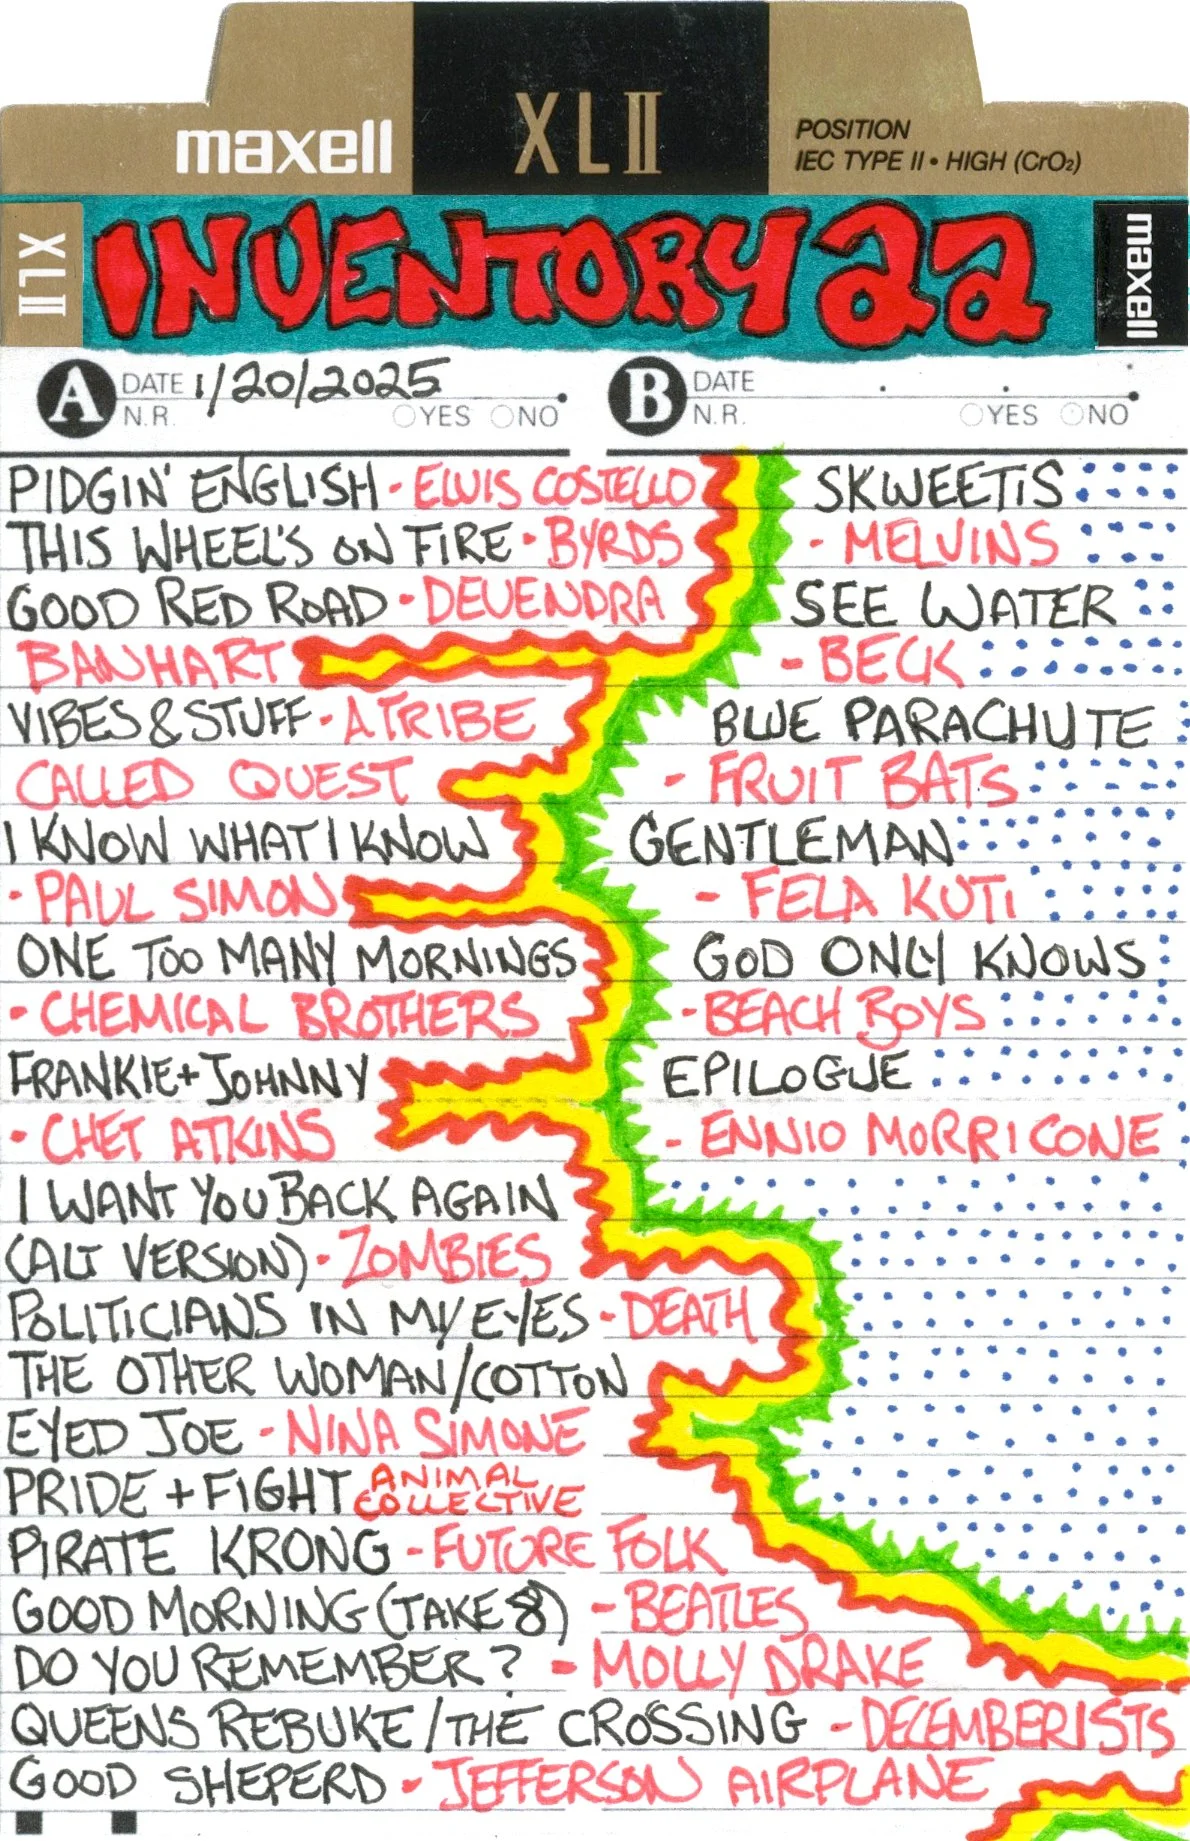 maxell
XLII
POSITION
IEC TYPE II • HIGH (CrO2)
XLII
INVENTORY 22
maxell
A DATE 1/20/2025
N.R. YES NO
B DATE
N.R. YES NO
PIDGIN' ENGLISH - ELVIS COSTELLO
THIS WHEEL'S ON FIRE - BYRDS
GOOD RED ROAD - DEVENDRA
BANHART
VIBES & STUFF - A TRIBE
CALLED QUEST
I KNOW WHAT I KNOW
- PAUL SIMON
ONE TOO MANY MORNINGS
- CHEMICAL BROTHERS
FRANKIE + JOHNNY
- CHET ATKINS
I WANT YOU BACK AGAIN
(ALT VERSION) - ZOMBIES
POLITICIANS IN MY EYES - DEATH
THE OTHER WOMAN/COTTON
EYED JOE - NINA SIMONE
PRIDE + FIGHT ANIMAL
COLLECTIVE
PIRATE KRONG - FUTURE FOLK
GOOD MORNING (TAKE 8) - BEATLES
DO YOU REMEMBER? - MOLLY DRAKE
QUEENS REBUKE / THE CROSSING - DECEMBERISTS
GOOD SHEPERD - JEFFERSON AIRPLANE
SKWEETIS
- MELVINS
SEE WATER
- BECK
BLUE PARACHUTE
- FRUIT BATS
GENTLEMAN
- FELA KUTI
GOD ONLY KNOWS
- BEACH BOYS
EPILOGUE
- ENNIO MORRICONE